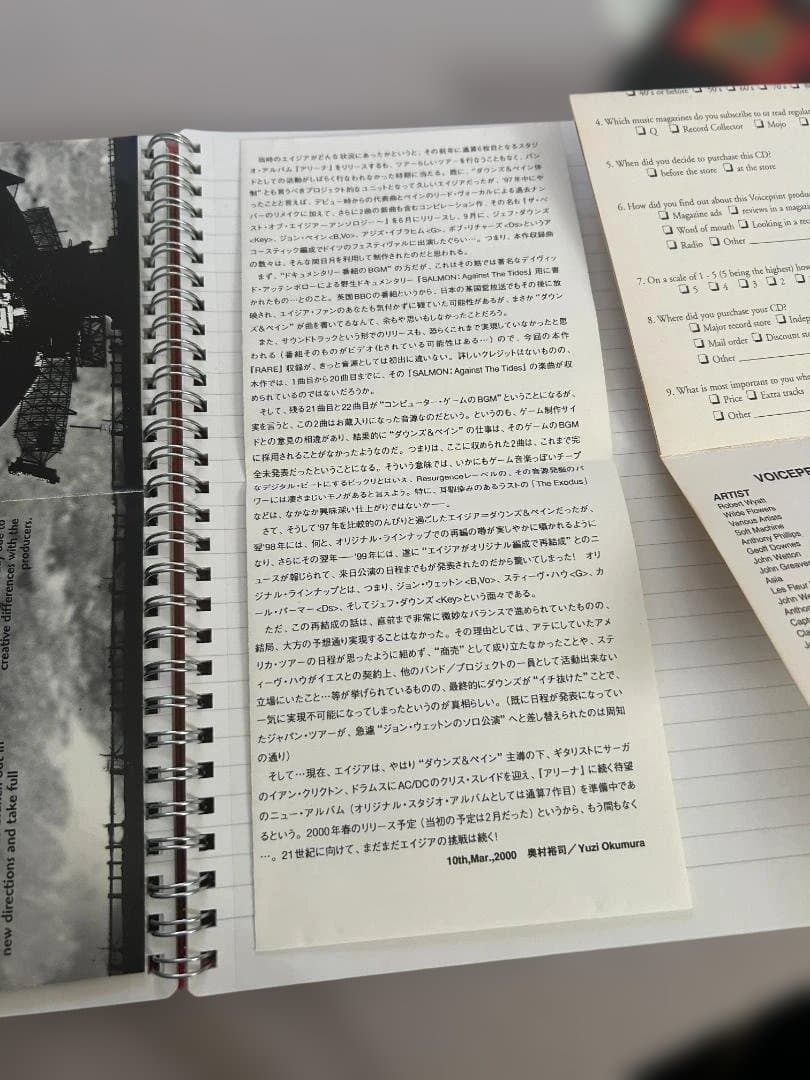 当時のエイジアがどんな状況にあったかというと、その前年に通算6枚目となるスタジ
オ・アルバム『アリーナ』をリリースするも、ツアーらしいツアーを行なうこともなく、バン
ドとしての活動がしばらく行なわれなかった時期に当たる。既に、“ダウンズ&ペイン体
制”とも言うべきプロジェクト的なユニットとなって久しいエイジアだったが、'97年中にや
ったことと言えば、デビュー時からの代表曲とペインのリード・ヴォーカルによる過去ナン
バーのリメイクに加えて、さらに2曲の新曲も含むコンピレーション作、その名も『ザ・ベ
スト・オブ・エイジア〜アンソロジー〜』を6月にリリースし、9月に、ジェフ・ダウンズ
<Key>、ジョン・ペイン<B,Vo>、アジズ・イブラヒム<G>、ボブ・リチャーズ<Ds>というア
コースティック編成でドイツのフェスティヴァルに出演したぐらい…。つまり、本作収録曲
の数々は、そんな間目月を利用して制作されたのだと思われる。
まず、“ドキュメンタリー番組のBGM”の方だが、これはその筋では著名なデイヴィッ
ド・アッテンボローによる野生ドキュメンタリー『SALMON: Against The Tides』用に書
かれたもの…とのこと。英国BBCの番組というから、日本の某国営放送でもその後に放
映され、エイジア・ファンのあなたも気付かずに観ていた可能性があるが、まさか“ダウン
ズ&ペイン”が曲を書いてるなんて、余もや思いもしなかったことだろう。
また、サウンドトラックという形でのリリースも、恐らくこれまで実現していなかったと思
われる（番組そのものがビデオ化されている可能性はある…）ので、今回の本作
『RARE』収録が、きっと音源としては初出に違いない。詳しいクレジットはないものの、
本作では、1曲目から20曲目までに、その『SALMON: Against The Tides』の楽曲が収
められているのではないだろうか。
そして、残る21曲目と22曲目が“コンピューター・ゲームのBGM”ということになるが、
実を言うと、この2曲はお蔵入りになった音源なのだという。というのも、ゲーム制作サイ
ドとの意見の相違があり、結果的に“ダウンズ&ペイン”の仕事は、そのゲームのBGM
に採用されることがなかったようなのだ。つまりは、ここに収められた2曲は、これまで完
全未発表だったということになる。そういう意味では、いかにもゲーム音楽っぽいチープ
なデジタル・ビートにするビックリとはいえ、Resurgenceレーベルの、その音源発掘のパ
ワーには凄さまじいモノがあると言えよう。特に、耳馴染みのあるラストの「The Exodus」
などは、なかなか興味深い仕上がりではないか──。
さて、そうして'97年を比較的のんびりと過ごしたエイジア=ダウンズ&ペインだったが、
翌'98年には、何と、オリジナル・ラインナップでの再編の噂が実しやかに囁かれるように
なり、さらにその翌年──'99年には、遂に“エイジアがオリジナル編成で再結成”とのニ
ュースが報じられて、来日公演の日程までもが発表されたのだから驚いてしまった! オリ
ジナル・ラインナップとは、つまり、ジョン・ウェットン<B,Vo>、スティーヴ・ハウ<G>、カ
ール・パーマー<Ds>、そしてジェフ・ダウンズ<Key>という面々である。
ただ、この再結成の話は、直前まで非常に微妙なバランスで進められていたものの、
結局、大方の予想通り実現することはなかった。その理由としては、アテにしていたアメ
リカ・ツアーの日程が思ったように組めず、“商売”として成り立たなかったことや、ステ
ィーヴ・ハウがイエスとの契約上、他のバンド／プロジェクトの一員として活動出来ない
立場にいたこと…等が挙げられているものの、最終的にダウンズが“イチ抜けた”ことで、
一気に実現不可能になってしまったというのが真相らしい。（既に日程が発表になってい
たジャパン・ツアーが、急遽“ジョン・ウェットンのソロ公演”へと差し替えられたのは周知
の通り）
そして…現在、エイジアは、やはり“ダウンズ&ペイン”主導の下、ギタリストにサーガ
のイアン・クリクトン、ドラムスにAC/DCのクリス・スレイドを迎え、『アリーナ』に続く待望
のニュー・アルバム（オリジナル・スタジオ・アルバムとしては通算7作目）を準備中であ
るという。2000年春のリリース予定（当初の予定は2月だった）というから、もう間もなく
…。21世紀に向けて、まだまだエイジアの挑戦は続く!
10th,Mar.,2000 奥村裕司／Yuzi Okumura
creative differences with the
producers,
new directions and take full
40's or before 50's 60's 70's
4. Which music magazines do you subscribe to or read regular
Q Record Collector Mojo
5. When did you decide to purchase this CD?
before the store at the store
6. How did you find out about this Voiceprint produ
Magazine ads reviews in a magazi
Word of mouth Looking in a rec
Radio Other
7. On a scale of 1 - 5 (5 being the highest) how
5 4 3 2
8. Where did you purchase your CD?
Major record store Indepe
Mail order Discount su
Other
9. What is most important to you whe
Price Extra tracks
Other
VOICEPR
ARTIST
Robert Wyatt
Wilde Flowers
Various Artists
Soft Machine
Anthony Phillips
Geoff Downes
John Wetton
John Greaves
Asia
Les Fleur
John We
Anthon
Capt
Cla